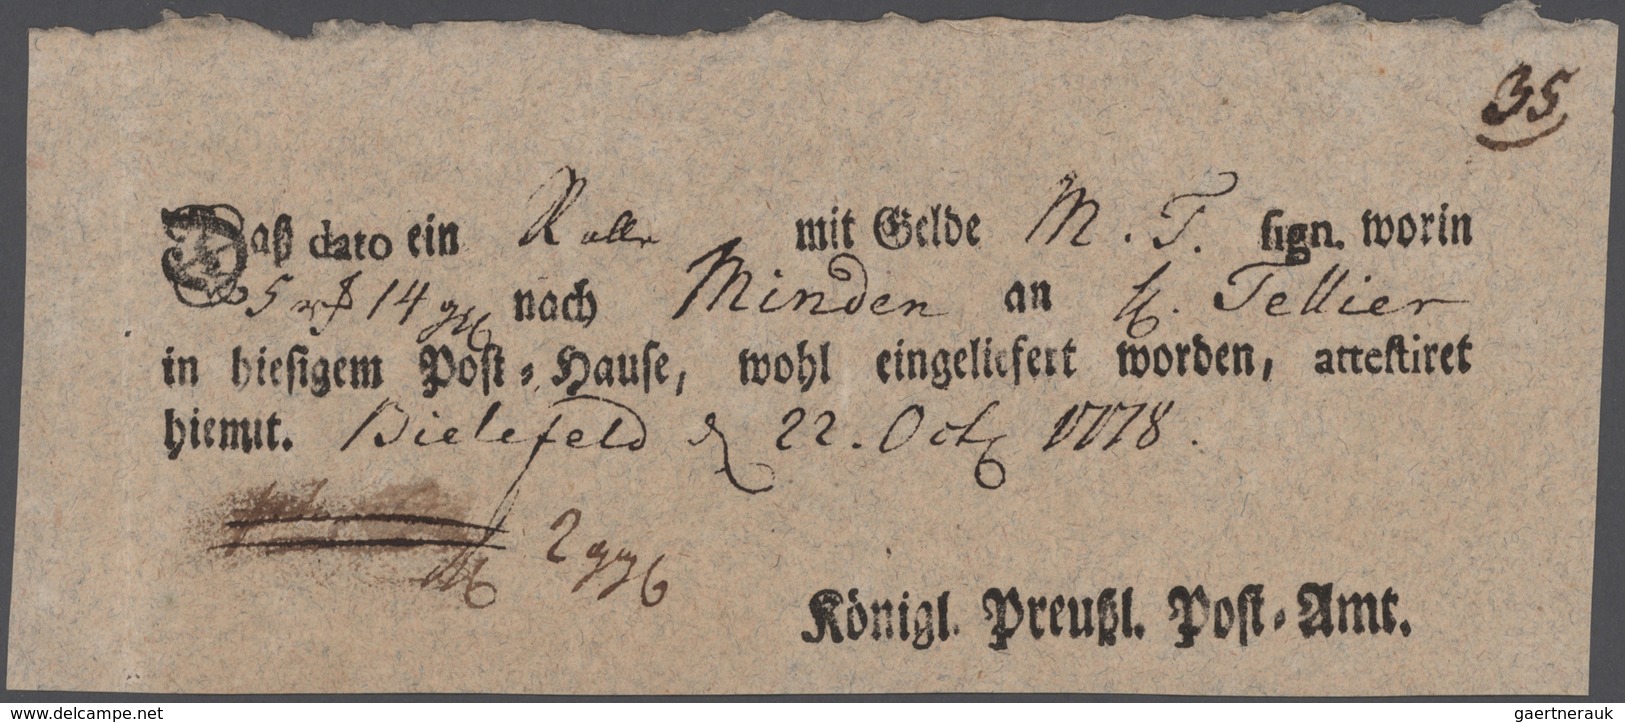 35
Daß dato ein Rolle mit Gelde M. T. sign. worin
5 rt 14 ggr nach Minden an H. Tellier
in hiesigem Post-Hause, wohl eingeliefert worden, attestiret
hiemit. Bielefeld d 22. Octr 1778.
2 ggr
Königl. Preußl. Post-Amt.
www.delcampe.net
gaertnerauk